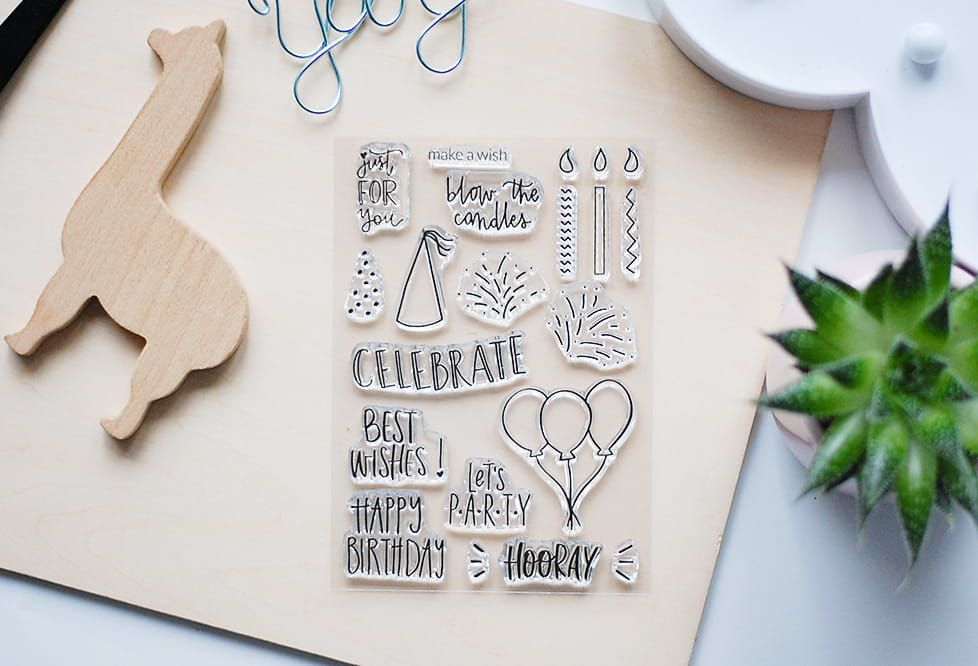 just
FOR
you
make a wish
blow the
candles
CELEBRATE
BEST
WISHES!
LET'S
P·A·R·T·Y
HAPPY
BIRTHDAY
HOORAY